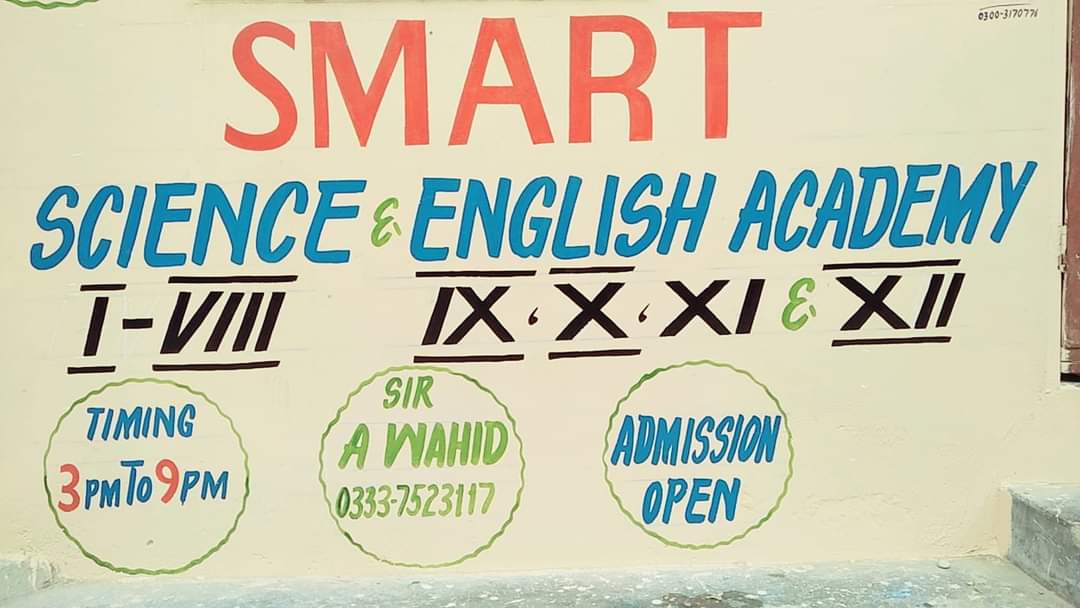 0300-3170776
SMART
SCIENCE & ENGLISH ACADEMY
I-VIII IX, X, XI & XII
TIMING
3PM TO 9PM
SIR
A WAHID
0333-7523117
ADMISSION
OPEN